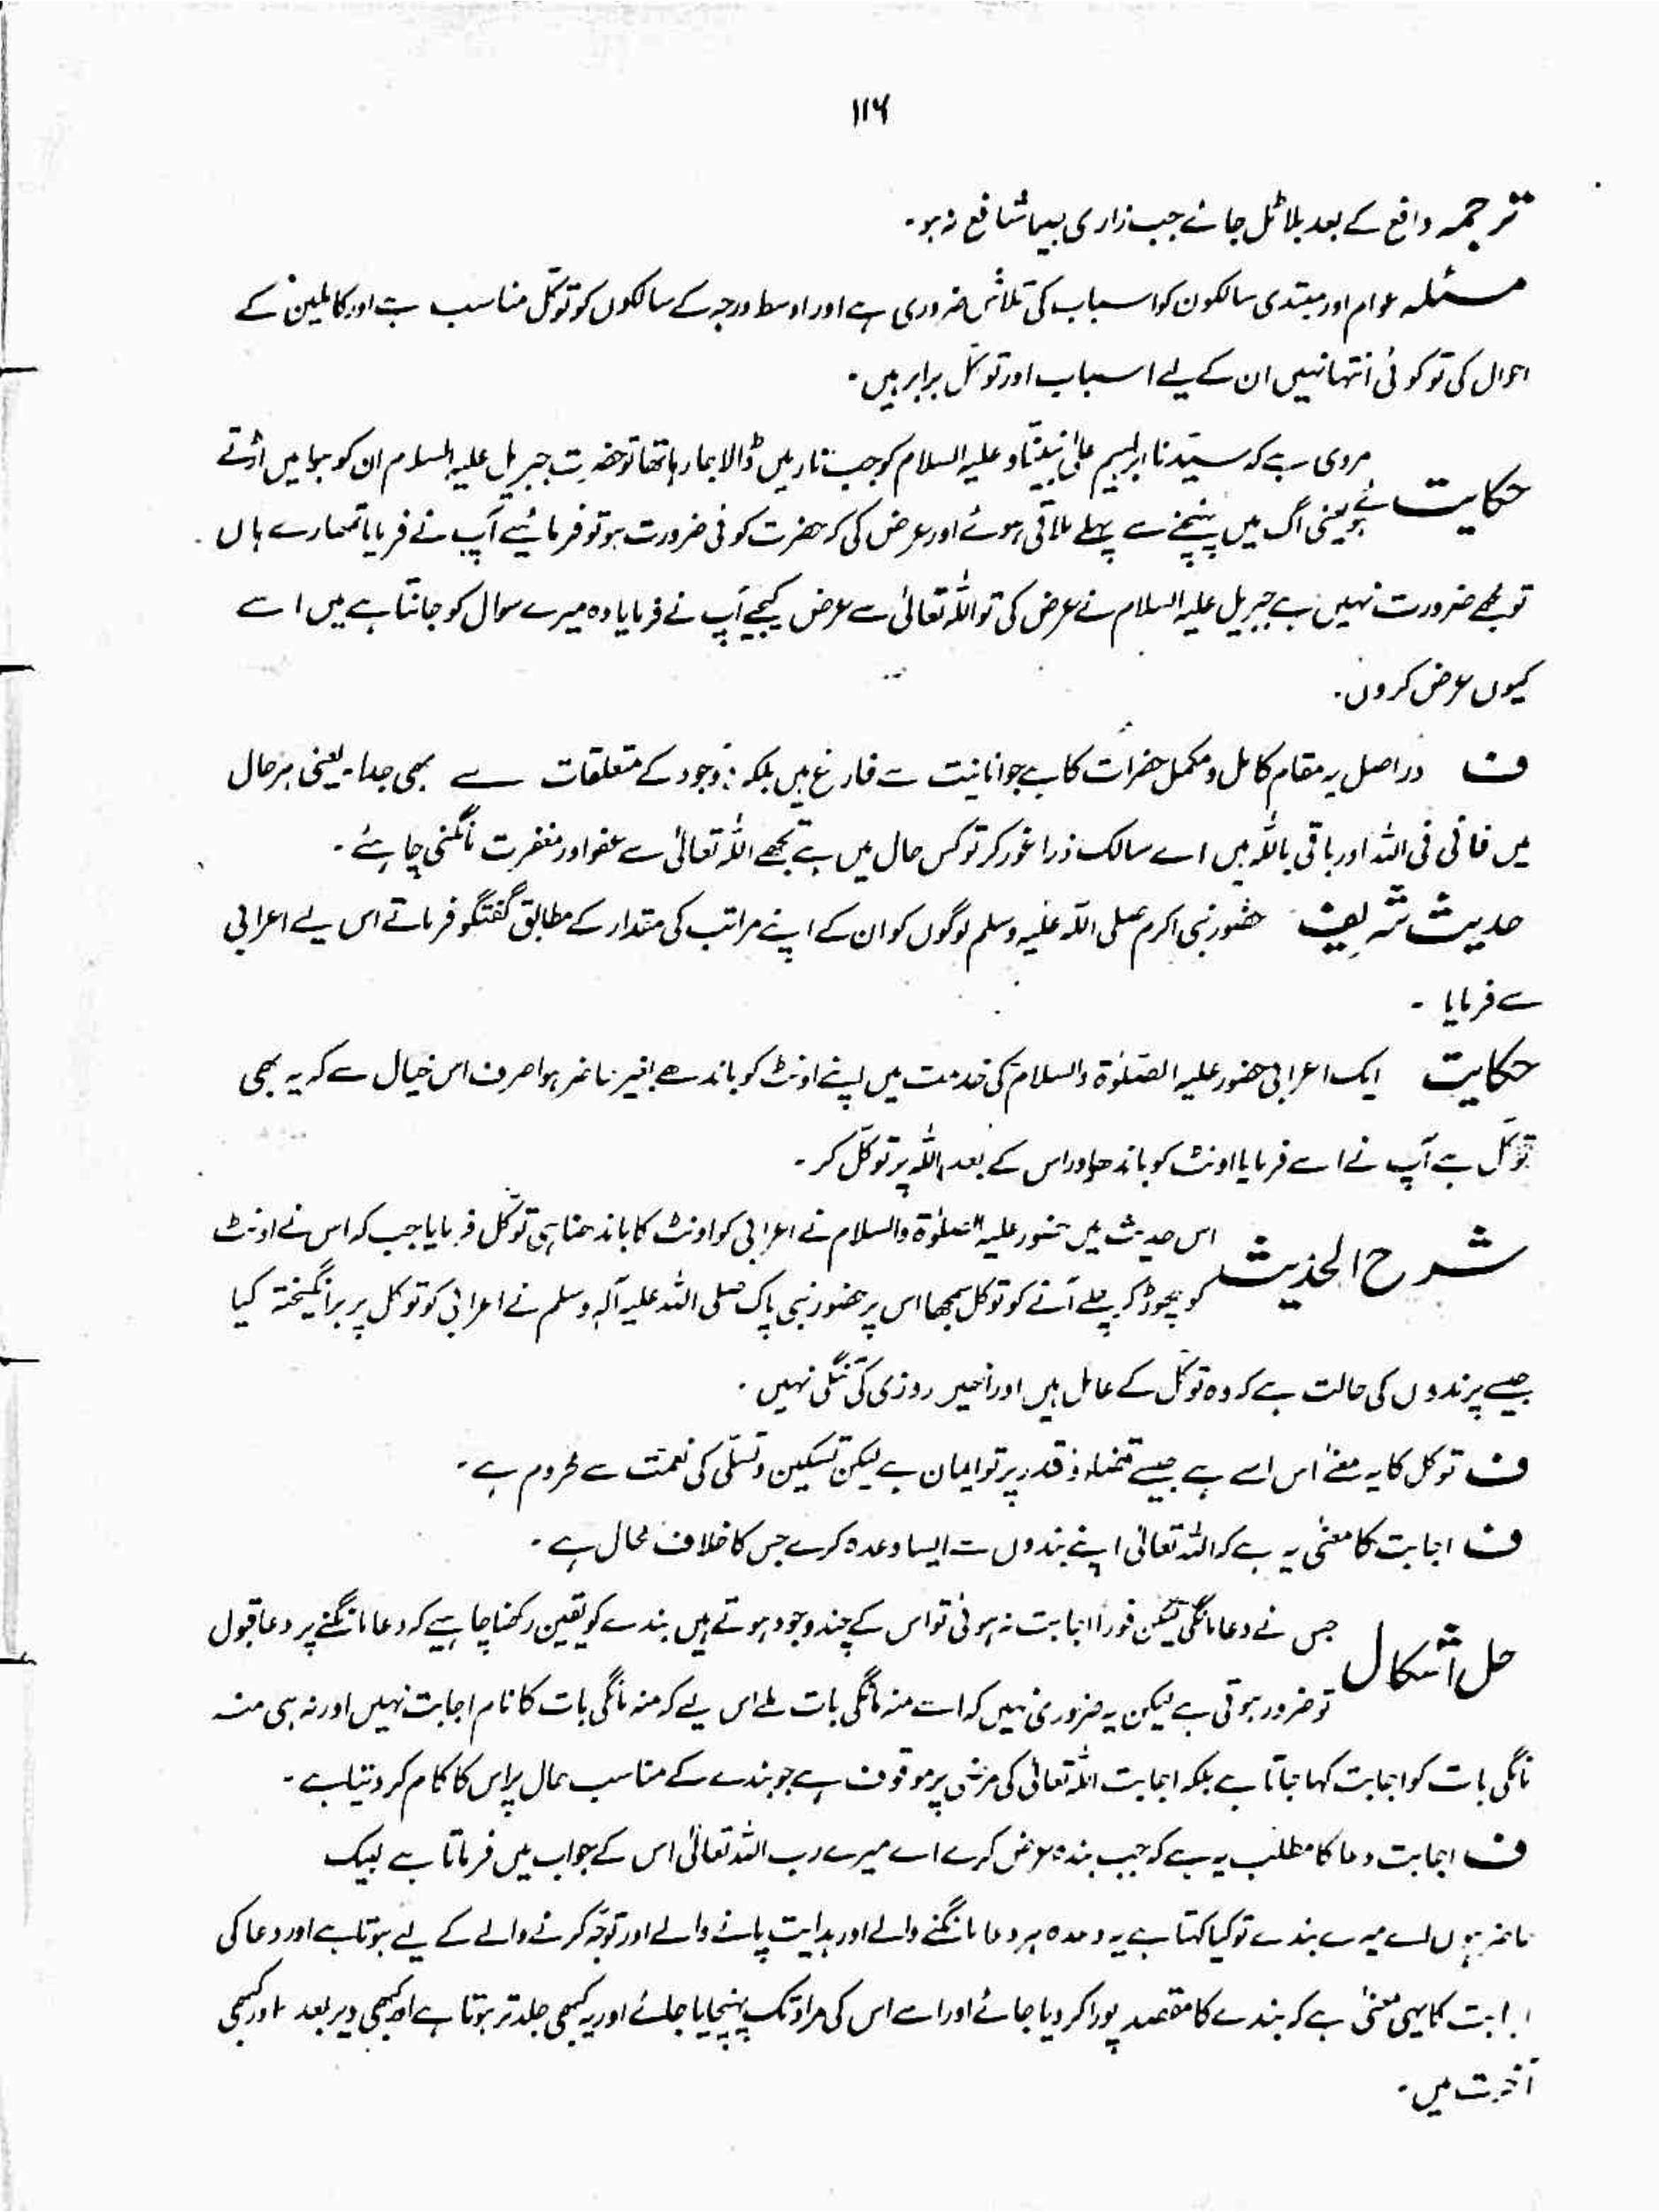 ۱۱۶
ترجمہ واقع کے بعد بلا ٹل جائے جب زاری بیما شافع نہ ہو۔
مسئلہ عوام اور مبتدی سالکون کو اسباب کی تلاش ضروری ہے اور اوسط درجہ کے سالکوں کو توکّل مناسب ہے اور کاملین کے
احوال کی تو کوئی انتہا نہیں ان کے لیے اسباب اور توکّل برابر ہیں۔
حکایت مروی ہے کہ سیّدنا ابراہیم علیٰ نبیّنا و علیہ السلام کو جب نار میں ڈالا جا رہا تھا تو حضرت جبریل علیہ السلام ان کو ہوا میں اڑتے
ہوئے یعنی آگ میں پہنچنے سے پہلے ملاقی ہوئے اور عرض کی کہ حضرت کوئی ضرورت ہو تو فرمائیے آپ نے فرمایا تمھارے ہاں
تو مجھے ضرورت نہیں ہے جبریل علیہ السلام نے عرض کی تو اللہ تعالیٰ سے عرض کیجیے آپ نے فرمایا وہ میرے سوال کو جانتا ہے میں اسے
کیوں عرض کروں۔
ف دراصل یہ مقام کامل و مکمل حضرات کا ہے جو انانیت سے فارغ ہیں بلکہ وجود کے متعلقات سے بھی جدا۔ یعنی ہر حال
میں فانی فی اللہ اور باقی باللہ ہیں اے سالک ذرا غور کر تو کس حال میں ہے تجھے اللہ تعالیٰ سے عفو اور مغفرت مانگنی چاہئے۔
حدیث شریف حضور نبی اکرم صلی اللہ علیہ وسلم لوگوں کو ان کے اپنے مراتب کی مقدار کے مطابق گفتگو فرماتے اس لیے اعرابی
سے فرمایا۔
حکایت ایک اعرابی حضور علیہ الصلوٰۃ والسلام کی خدمت میں اپنے اونٹ کو باندھے بغیر حاضر ہوا صرف اس خیال سے کہ یہ بھی
توکّل ہے آپ نے اسے فرمایا اونٹ کو باندھ اور اس کے بعد اللہ پر توکّل کر۔
شرح الحدیث اس حدیث میں حضور علیہ الصلوٰۃ والسلام نے اعرابی کو اونٹ کا باندھنا ہی توکّل فرمایا جب کہ اس نے اونٹ
کو چھوڑ کر چلے آنے کو توکل سمجھا اس پر حضور نبی پاک صلی اللہ علیہ آلہ وسلم نے اعرابی کو توکل پر برانگیختہ کیا
جیسے پرندوں کی حالت ہے کہ وہ توکّل کے عامل ہیں اور انھیں روزی کی تنگی نہیں۔
ف توکل کا یہ معنے اس لئے ہے جیسے قضاء و قدر پر تو ایمان ہے لیکن تسکین و تسلّی کی نعمت سے محروم ہے۔
ف اجابت کا معنیٰ یہ ہے کہ اللہ تعالیٰ اپنے بندوں سے ایسا وعدہ کرے جس کا خلاف محال ہے۔
حل اشکال جس نے دعا مانگی لیکن فورا اجابت نہ ہوئی تو اس کے چند وجود ہوتے ہیں بندے کو یقین رکھنا چاہیے کہ دعا مانگنے پر دعا قبول
تو ضرور ہوتی ہے لیکن یہ ضروری نہیں کہ اسے منہ مانگی بات ملے اس لیے کہ منہ مانگی بات کا نام اجابت نہیں اور نہ ہی منہ
مانگی بات کو اجابت کہا جاتا ہے بلکہ اجابت اللہ تعالیٰ کی مرضی پر موقوف ہے جو بندے کے مناسب حال پر اس کا کام کر دیتا ہے۔
ف اجابت دعا کا مطلب یہ ہے کہ جب بندہ عرض کرے اے میرے رب اللہ تعالیٰ اس کے جواب میں فرماتا ہے لبیک
حاضر ہوں اے میرے بندے تو کیا کہتا ہے یہ وعدہ ہر دعا مانگنے والے اور ہدایت پانے والے اور توجّہ کرنے والے کے لیے ہوتا ہے اور دعا کی
اجابت کا یہی معنیٰ ہے کہ بندے کا مقصد پورا کر دیا جائے اور اسے اس کی مراد تک پہنچایا جائے اور یہ کبھی جلد تر ہوتا ہے اور کبھی دیر بعد اور کبھی
آخرت میں۔